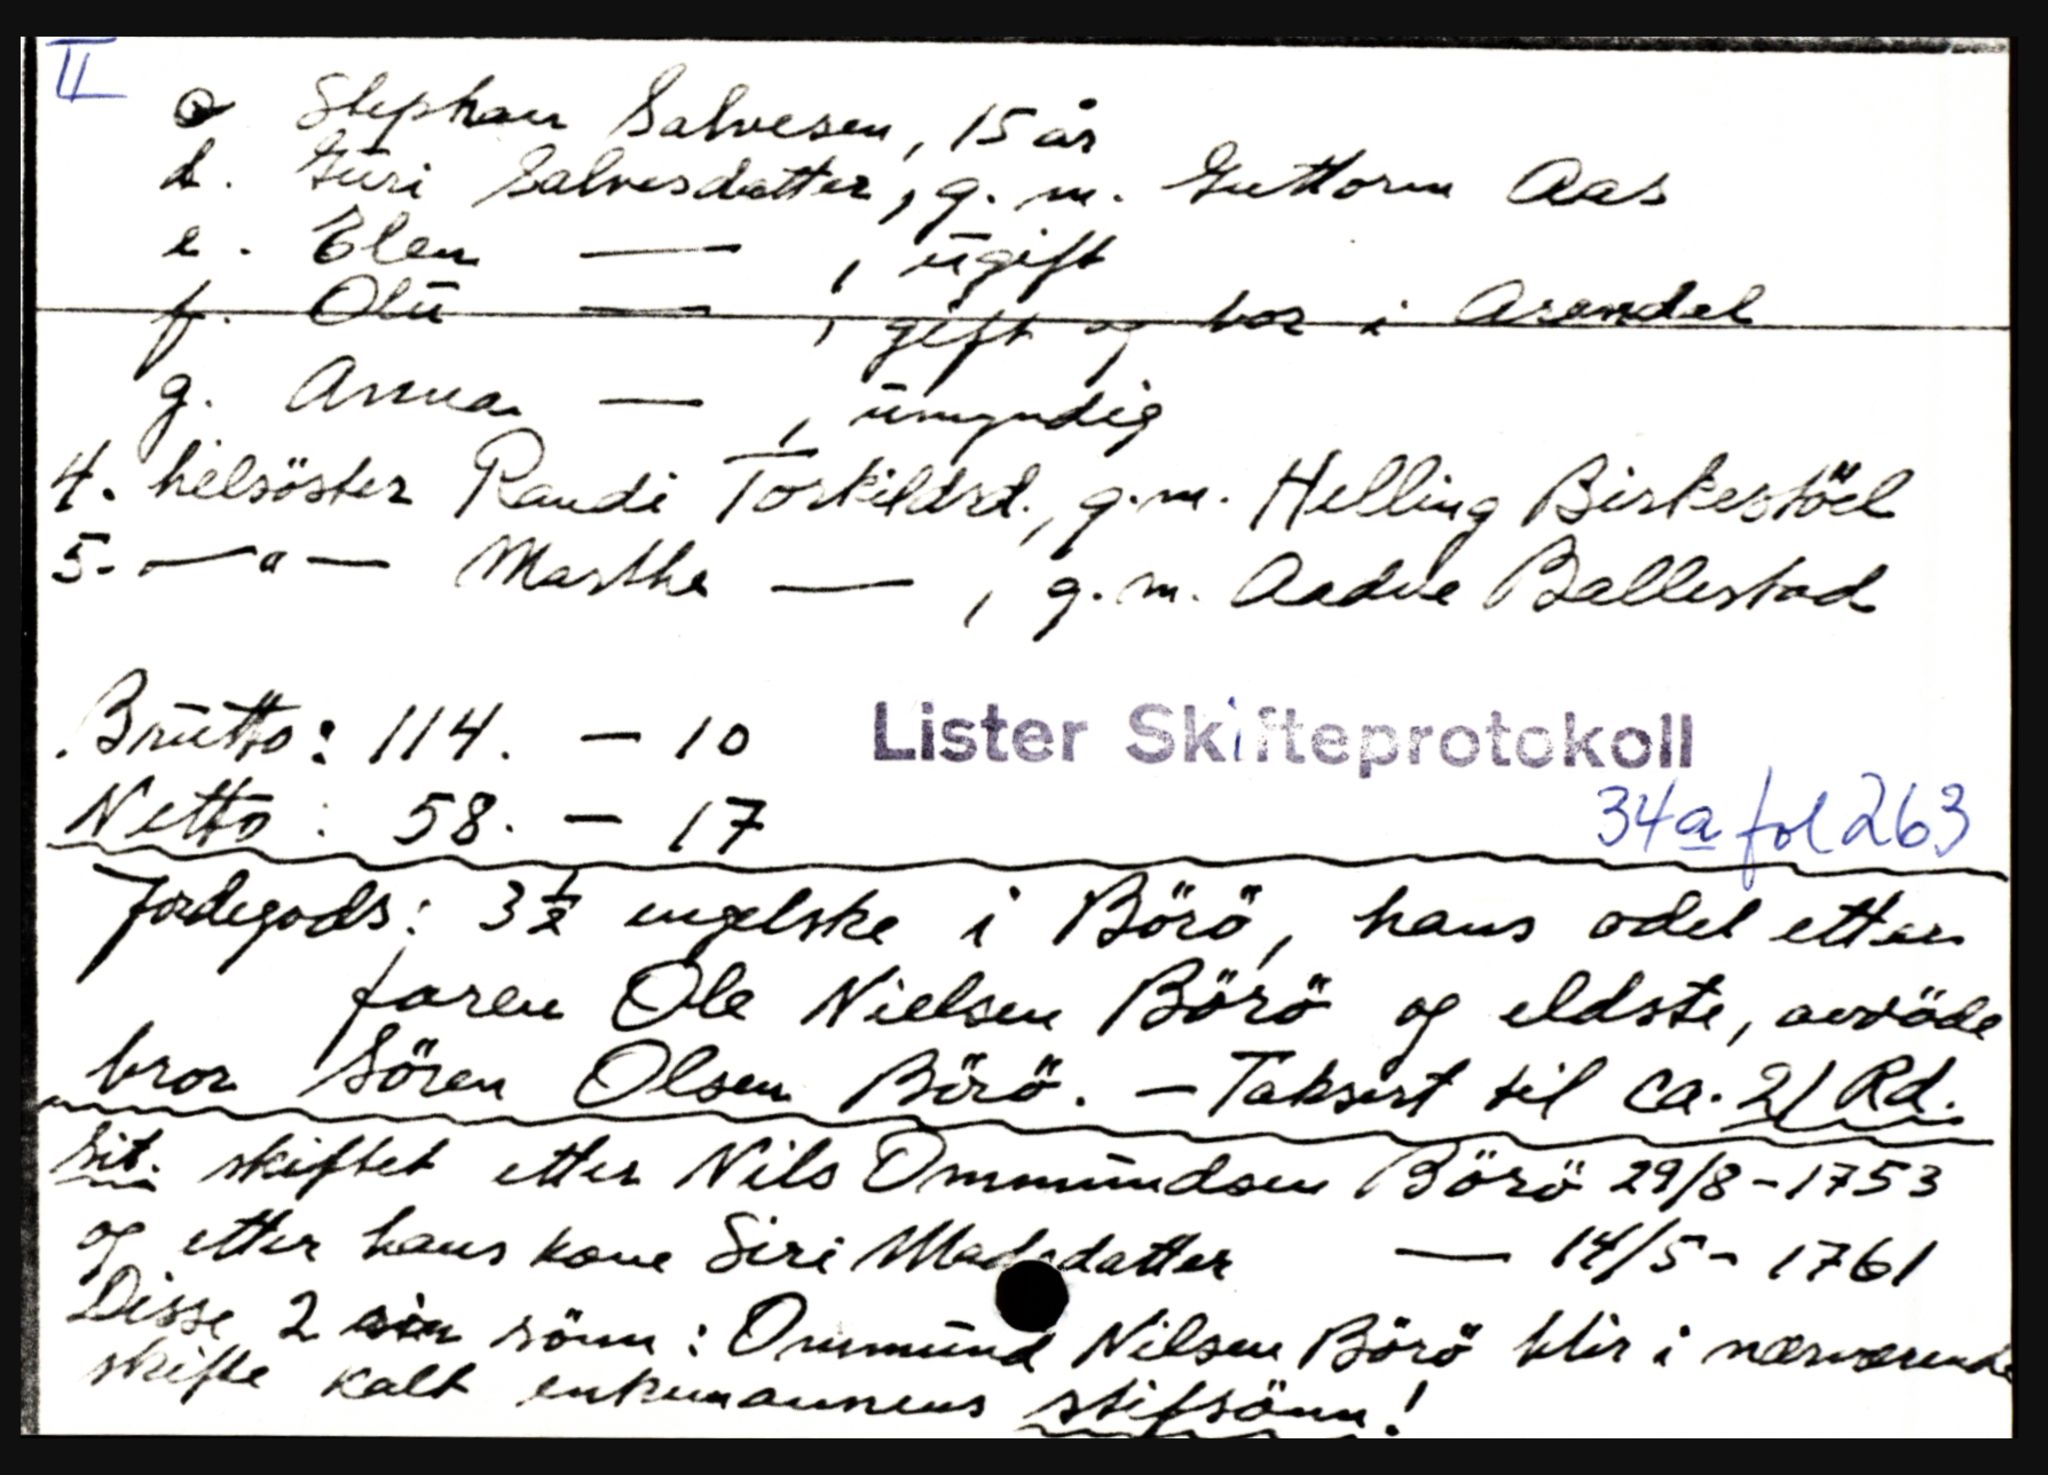 II
c. Stephan Salvesen, 15 år
d. Guri Salvesdatter, g. m. Guttorm Aas
e. Elen — , ugift
f. Olu — , gift og bor i Arendal
g. Anna — , umyndig
4. helsöster Randi Torkildsd., g.m. Helling Birkestöel
5. — " — Marthe — , g. m. Aadne Ballestad
Brutto: 114. — 10
Lister Skifteprotokoll
Netto: 58. — 17
34a fol 263
Jordegods: 3 1/2 engelske i Börö, hans odel etter
faren Ole Nielsen Börö og eldste, avdöde
bror Sören Olsen Börö. — Taksert til ca. 21 Rd.
Sit. skiftet etter Nils Ommundsen Börö 29/8-1753
og etter hans kone Siri Madsdatter — 14/5-1761
Disse 2 sin sönn: Ommund Nilsen Börö blir i nærværende
skifte kalt enkemannens stifsönn!